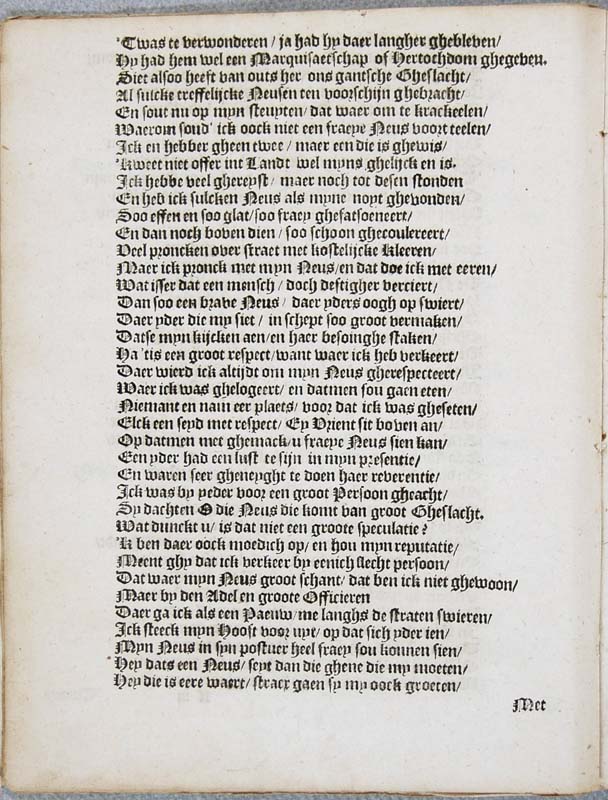 'Twas te verwonderen / ja had hy daer langher ghebleven/
Hy had hem wel een Marquisaetschap of Hertochdom ghegeven.
Siet alsoo heeft van outs her ons gantsche Gheslacht/
Al sulcke treffelijcke Neusen ten voorschijn ghebracht/
En sout nu op myn steuyten/ dat waer om te krackeelen/
Waerom soud' ick oock niet een fraeye Neus voort teelen/
Ick en hebber gheen twee / maer een die is ghewis/
'Kweet niet offer int Landt wel myns ghelijck en is.
Ick hebbe veel ghereyst/ maer noch tot desen stonden
En heb ick sulcken Neus als myne noyt ghevonden/
Soo effen en soo glat/soo fraey ghefatsoeneert/
En dan noch boven dien / soo schoon ghecoulereert/
Veel proncken over straet met kostelijcke kleeren/
Maer ick pronck met myn Neus/en dat doe ick met eeren/
Wat isser dat een mensch / doch deftigher verciert/
Dan soo een brave Neus / daer yders oogh op swiert/
Daer yder die my siet / in schept soo groot vermaken/
Datse myn kijcken aen/en haer besoinghe staken/
Ha 'tis een groot respect/want waer ick heb verkeert/
Daer wierd ick altijdt om myn Neus gherespecteert/
Waer ick was ghelogeert/ en datmen sou gaen eten/
Niemant en nam eer plaets/ voor dat ick was gheseten/
Elck een seyd met respect/ Ey Vrient sit boven an/
Op datmen met ghemack/u fraeye Neus sien kan/
Een yder had een lust te sijn in myn presentie/
En waren seer gheneyght te doen haer reverentie/
Ick was by yeder voor een groot Persoon gheacht/
Sy dachten O die Neus die komt van groot Gheslacht.
Wat dunckt u/ is dat niet een groote speculatie?
'K ben daer oock moedich op/ en hou myn reputatie/
Meent ghy dat ick verkeer by eenich slecht persoon/
Dat waer myn Neus groot schant/ dat ben ick niet ghewoon/
Maer by den Adel en groote Officieren
Daer ga ick als een Paeuw/me langhs de straten swieren/
Ick steeck myn Hooft voor uyt/ op dat sich yder ien/
Myn Neus in syn postuer heel fraey sou konnen sien/
Hey dats een Neus/ seyt dan die ghene die my moeten/
Hey die is eere waert/ stracx gaen sy my oock groeten/
Met